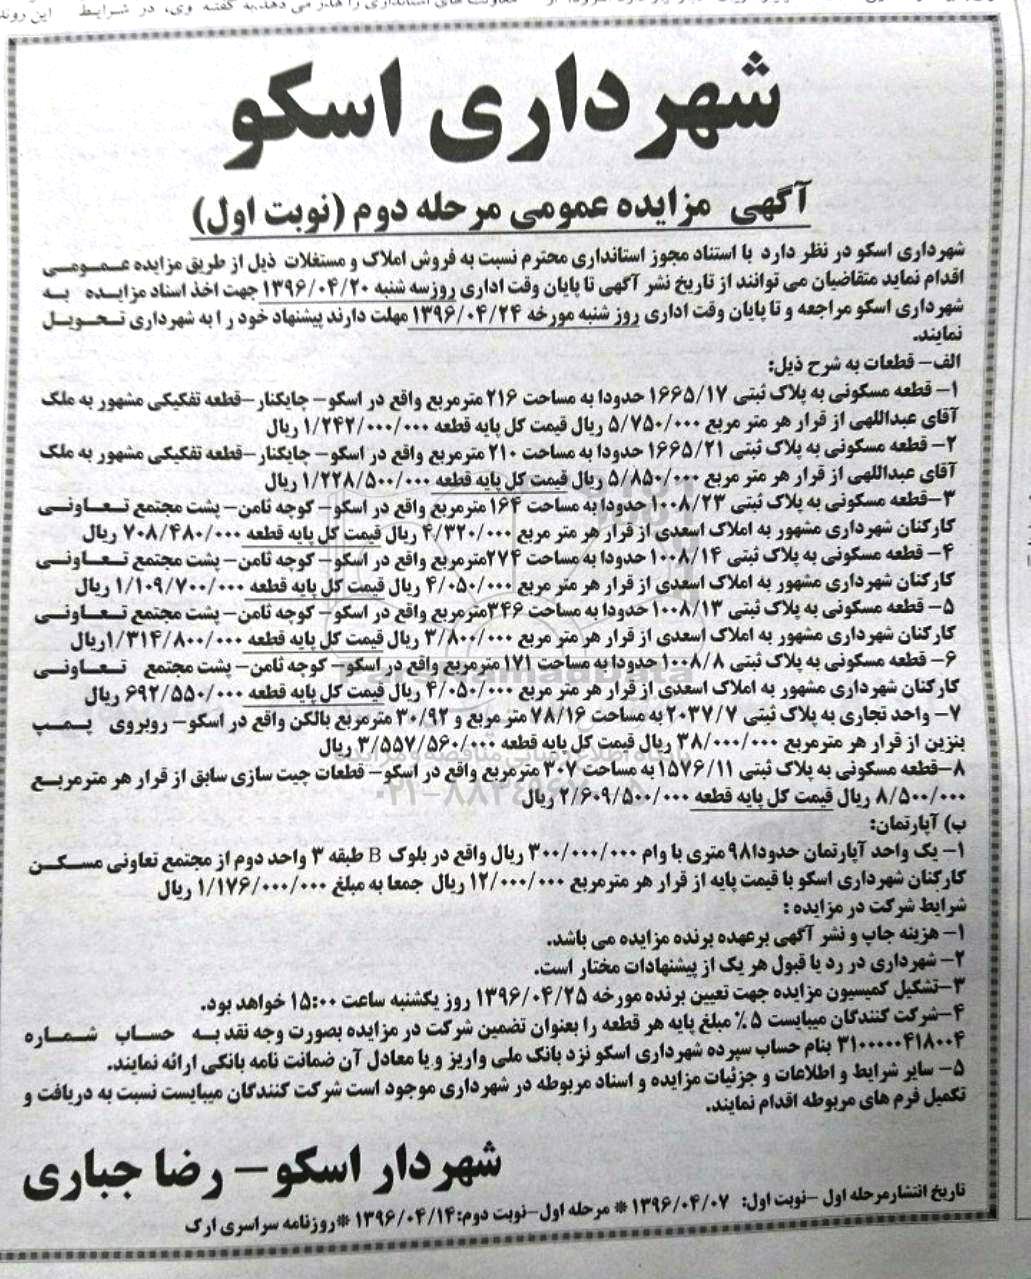 شهرداری اسکو
آگهی مزایده عمومی مرحله دوم (نوبت اول)
شهرداری اسکو در نظر دارد با استناد مجوز استانداری محترم نسبت به فروش املاک و مستغلات ذیل از طریق مزایده عمومی
اقدام نماید متقاضیان می توانند از تاریخ نشر آگهی تا پایان وقت اداری روزسه شنبه ۱۳۹۶/۰۴/۲۰ جهت اخذ اسناد مزایده به
شهرداری اسکو مراجعه و تا پایان وقت اداری روز شنبه مورخه ۱۳۹۶/۰۴/۲۴ مهلت دارند پیشنهاد خود را به شهرداری تحویل
نمایند.
الف- قطعات به شرح ذیل:
۱- قطعه مسکونی به پلاک ثبتی ۱۶۶۵/۱۷ حدودا به مساحت ۲۱۶ مترمربع واقع در اسکو- چایکنار-قطعه تفکیکی مشهور به ملک
آقای عبداللهی از قرار هر متر مربع ۵/۷۵۰/۰۰۰ ریال قیمت کل پایه قطعه ۱/۲۴۲/۰۰۰/۰۰۰ ریال
۲- قطعه مسکونی به پلاک ثبتی ۱۶۶۵/۲۱ حدودا به مساحت ۲۱۰ مترمربع واقع در اسکو- چایکنار-قطعه تفکیکی مشهور به ملک
آقای عبداللهی از قرار هر متر مربع ۵/۸۵۰/۰۰۰ ریال قیمت کل پایه قطعه ۱/۲۲۸/۵۰۰/۰۰۰ ریال
۳-قطعه مسکونی به پلاک ثبتی ۱۰۰۸/۲۳ حدودا به مساحت ۱۶۴ مترمربع واقع در اسکو- کوچه ثامن- پشت مجتمع تعاونی
کارکنان شهرداری مشهور به املاک اسعدی از قرار هر متر مربع ۴/۳۲۰/۰۰۰ ریال قیمت کل پایه قطعه ۷۰۸/۴۸۰/۰۰۰ ریال
۴- قطعه مسکونی به پلاک ثبتی ۱۰۰۸/۱۴ حدودا به مساحت ۲۷۴مترمربع واقع در اسکو- کوچه ثامن- پشت مجتمع تعاونی
کارکنان شهرداری مشهور به املاک اسعدی از قرار هر متر مربع ۴/۰۵۰/۰۰۰ ریال قیمت کل پایه قطعه ۱/۱۰۹/۷۰۰/۰۰۰ ریال
۵- قطعه مسکونی به پلاک ثبتی ۱۰۰۸/۱۳ حدودا به مساحت ۳۴۶مترمربع واقع در اسکو- کوچه ثامن- پشت مجتمع تعاونی
کارکنان شهرداری مشهور به املاک اسعدی از قرار هر متر مربع ۳/۸۰۰/۰۰۰ ریال قیمت کل پایه قطعه ۱/۳۱۴/۸۰۰/۰۰۰ریال
۶- قطعه مسکونی به پلاک ثبتی ۱۰۰۸/۸ حدودا به مساحت ۱۷۱ مترمربع واقع در اسکو- کوچه ثامن- پشت مجتمع تعاونی
کارکنان شهرداری مشهور به املاک اسعدی از قرار هر متر مربع ۴/۰۵۰/۰۰۰ ریال قیمت کل پایه قطعه ۶۹۲/۵۵۰/۰۰۰ ریال
۷- واحد تجاری به پلاک ثبتی ۲۰۳۷/۷ به مساحت ۷۸/۱۶ متر مربع و ۳۰/۹۲ مترمربع بالکن واقع در اسکو- روبروی پمپ
بنزین از قرار هر مترمربع ۳۸/۰۰۰/۰۰۰ ریال قیمت کل پایه قطعه ۳/۵۵۷/۵۶۰/۰۰۰ ریال
۸-قطعه مسکونی به پلاک ثبتی ۱۵۷۶/۱۱ به مساحت ۳۰۷ مترمربع واقع در اسکو- قطعات چیت سازی سابق از قرار هر مترمربع
۸/۵۰۰/۰۰۰ ریال قیمت کل پایه قطعه ۲/۶۰۹/۵۰۰/۰۰۰ ریال
ب) آپارتمان:
۱- یک واحد آپارتمان حدودا۹۸ متری با وام ۳۰۰/۰۰۰/۰۰۰ ریال واقع در بلوک B طبقه ۳ واحد دوم از مجتمع تعاونی مسکن
کارکنان شهرداری اسکو با قیمت پایه از قرار هر مترمربع ۱۲/۰۰۰/۰۰۰ ریال جمعا به مبلغ ۱/۱۷۶/۰۰۰/۰۰۰ ریال
شرایط شرکت در مزایده :
۱- هزینه چاپ و نشر آگهی برعهده برنده مزایده می باشد.
۲- شهرداری در رد یا قبول هر یک از پیشنهادات مختار است.
۳-تشکیل کمیسیون مزایده جهت تعیین برنده مورخه ۱۳۹۶/۰۴/۲۵ روز یکشنبه ساعت ۱۵:۰۰ خواهد بود.
۴-شرکت کنندگان میبایست ۵٪ مبلغ پایه هر قطعه را بعنوان تضمین شرکت در مزایده بصورت وجه نقد به حساب شماره
۳۱۰۰۰۰۰۴۱۸۰۰۴ بنام حساب سپرده شهرداری اسکو نزد بانک ملی واریز و یا معادل آن ضمانت نامه بانکی ارائه نمایند.
۵- سایر شرایط و اطلاعات و جزئیات مزایده و اسناد مربوطه در شهرداری موجود است شرکت کنندگان میبایست نسبت به دریافت و
تکمیل فرم های مربوطه اقدام نمایند.
شهردار اسکو- رضا جباری
تاریخ انتشارمرحله اول -نوبت اول: ۱۳۹۶/۰۴/۰۷ * مرحله اول-نوبت دوم:۱۳۹۶/۰۴/۱۴ *روزنامه سراسری ارک